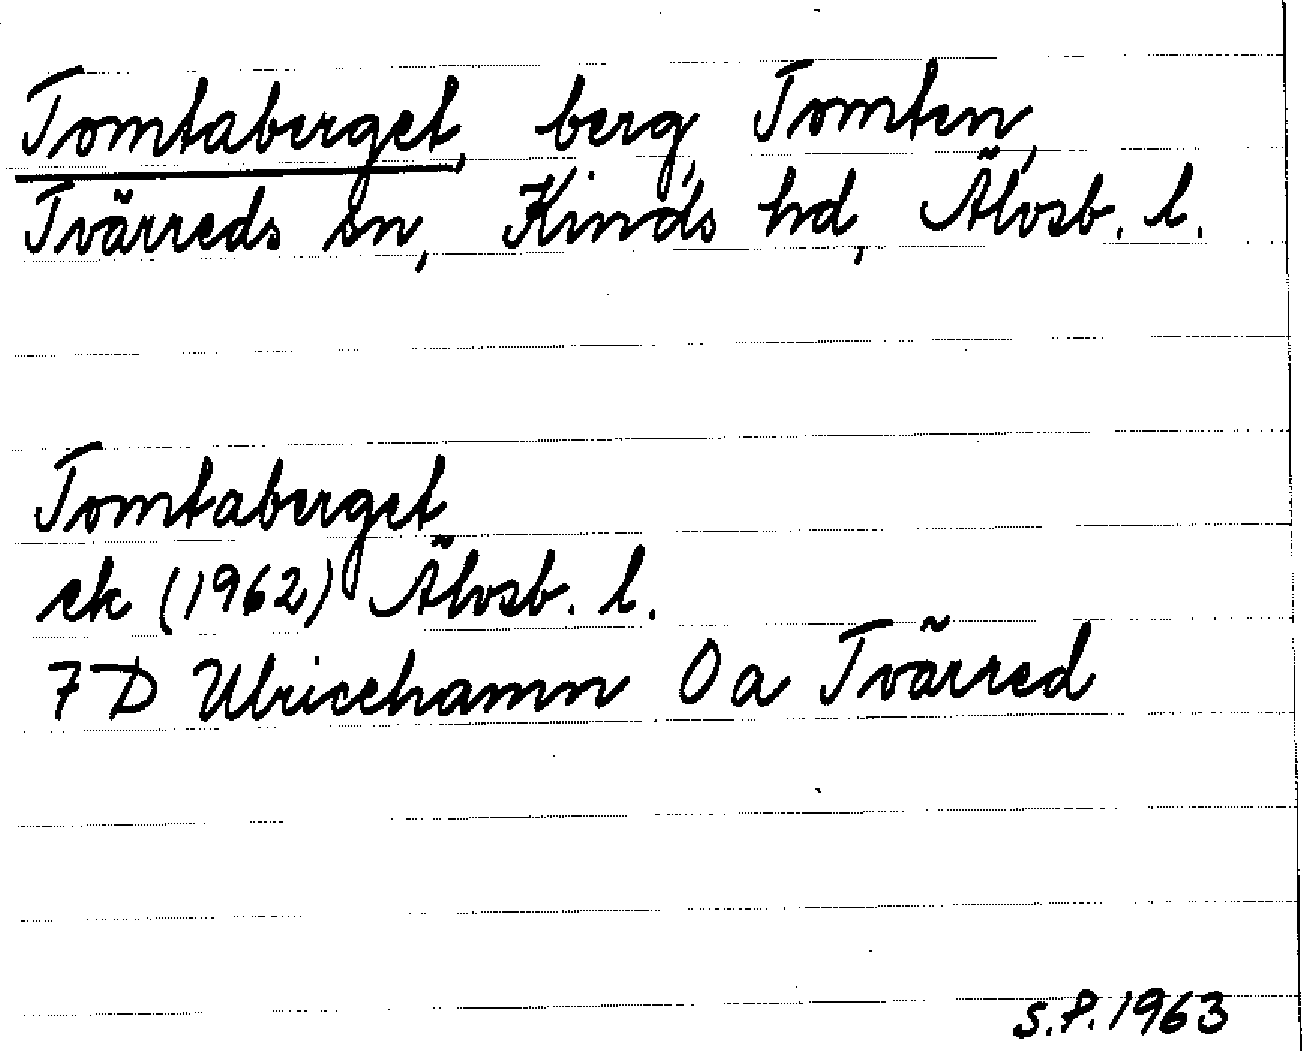 Tomtaberget, berg, Tomten,
Tvärreds sn, Kinds hd, Älvsb. l.
Tomtaberget
ek (1962) Älvsb. l.
7 D Ulricehamn 0 a Tvärred
S.P. 1963